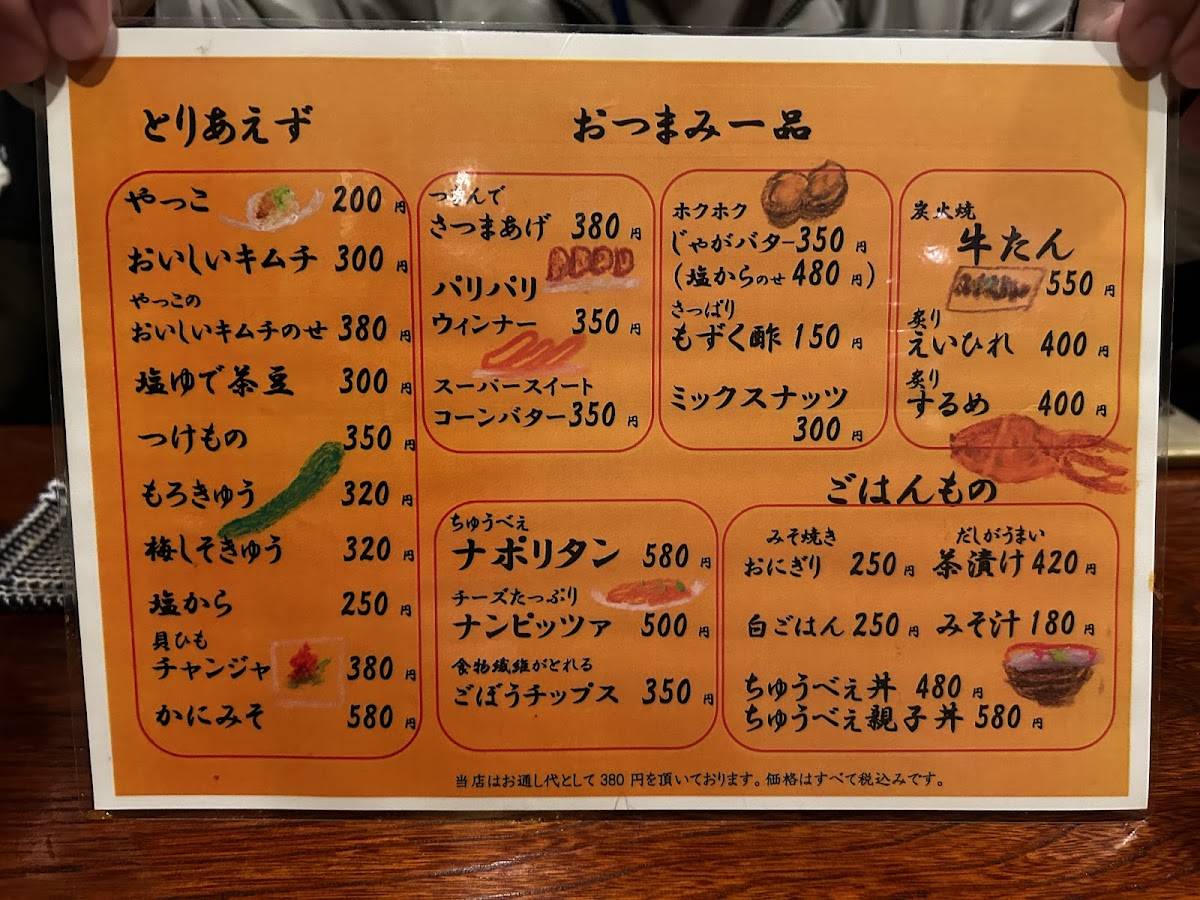 とりあえず
やっこ 200円
おいしいキムチ 300円
やっこの
おいしいキムチのせ 380円
塩ゆで茶豆 300円
つけもの 350円
もろきゅう 320円
梅しそきゅう 320円
塩から 250円
貝ひも
チャンジャ 380円
かにみそ 580円
おつまみ一品
さつまあげ 380円
パリパリ
ウィンナー 350円
スーパースイート
コーンバター350円
ホクホク
じゃがバター350円
(塩からのせ 480円)
さっぱり
もずく酢 150円
ミックスナッツ
300円
炭火焼
牛たん
550円
炙り
えいひれ 400円
炙り
するめ 400円
ちゅうべえ
ナポリタン 580円
チーズたっぷり
ナンピッツァ 500円
食物繊維がとれる
ごぼうチップス 350円
ごはんもの
みそ焼き
おにぎり 250円
だしがうまい
茶漬け 420円
白ごはん 250円
みそ汁 180円
ちゅうべえ丼 480円
ちゅうべえ親子丼 580円
当店はお通し代として380円を頂いております。価格はすべて税込みです。